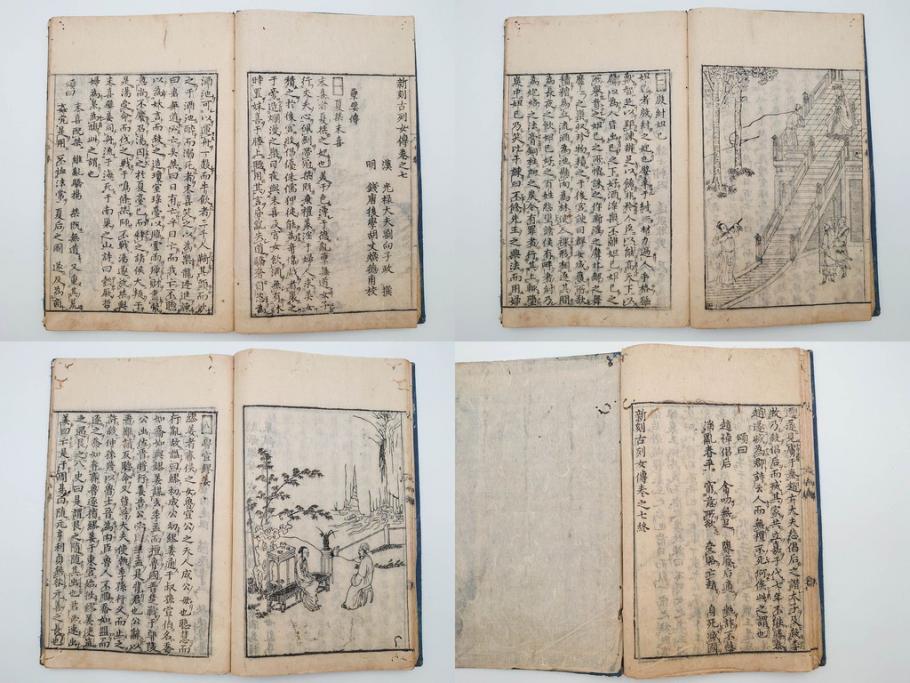 新刻古列女傳卷之七
漢 光祿大夫劉向子政 撰
明 錢唐後學胡文煥德甫校
孽嬖傳
夏桀末喜
末喜者夏桀之妃也美于色薄于德亂孽無道女子
行丈夫心佩劍帶冠桀既棄禮義淫于婦人求美女
積之於後宮收倡優侏儒狎徒能為奇偉戲者聚之
于旁造爛漫之樂日夜與末喜及宮女飲酒無有休
時置末喜于膝上聽用其言昏亂失道驕奢自恣為
酒池可以運舟一鼓而牛飲者三千人鞿其頭而飲
之于酒池醉而溺死者末喜笑之以為樂龍逢進諫
曰君無道必亡矣桀曰日有亡乎日亡而我亡不聽
以為妖言而殺之造瓊室瑤臺以臨雲雨殫財盡幣
意尚不饜召湯囚之於夏臺已而釋之諸侯大叛於
是湯受命而伐之戰于鳴條桀師不戰湯遂放桀與
末喜嬖妾同舟流于海死于南巢之山詩曰懿厥哲
婦為梟為鴟此之謂也
頌曰 末喜配桀 維亂驕揚 桀既無道 又重其荒
姦宄是用 不恤法常 夏后之國 遂反為商
殷紂妲己
妲己者殷紂之妃也嬖幸於紂紂材力過人手格猛
獸智足以距諫辯足以飾非矜人臣以能高天下以
聲以為人皆出己之下好酒淫樂不離妲己妲己之
所譽貴之妲己之所憎誅之作新淫之聲北鄙之舞
靡靡之樂收珍物積之于後宮諛臣群女咸獲所欲
積糟為丘流酒為池懸肉為林使人裸形相逐其間
為長夜之飲妲己好之百姓怨望諸侯有畔者紂乃
為炮烙之法膏銅柱加之炭令有罪者行其上輒墮
炭中妲己乃笑比干諫曰不修先王之典法而用婦
魯宣繆姜
繆姜者齊侯之女魯宣公之夫人成公母也聰慧而
行亂故謚曰繆初成公幼繆姜通于叔孫宣伯名喬
如喬如與繆姜謀去季孟而擅魯國晉楚戰于鄢陵
公出佐晉將行姜告公必逐季孟是背君也公辭以
晉難請反聽命又貨晉大夫使執季孫行父而止之
許殺仲孫蔑以魯士晉為內臣魯人不順喬如盟而
逐之喬如奔齊魯遂擯繆姜于東宮始往繆姜使筮
之遇艮之八史曰是謂艮之隨隨其出也君必速出
姜曰亡是于周易曰隨元亨利貞無咎元善之長也
遷遂見虜于秦趙有大夫怨倡后之譖太子及殺李
牧乃殺倡后而滅其家共立嘉于代七年不能勝秦
趙遂滅為郡詩云人而無禮不死何俟此之謂也
頌曰
趙悼倡后 貪叨無足 隳廢后適 執詐不慤
淫亂春平 窮意所欲 受賂亡趙 身死滅國
新刻古列女傳卷之七終